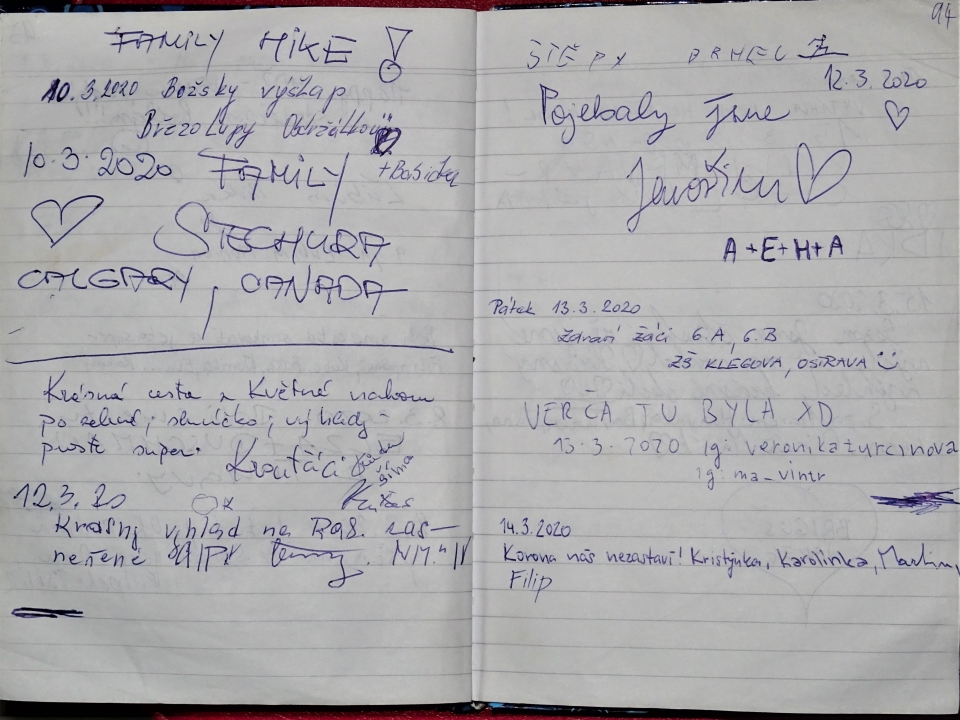 FAMILY HIKE!
10.3.2020 Božský výšlap
Březolupy Obdržálkovi
+ Basička
10.3.2020 FAMILY
STECHURA
CALGARY, CANADA
Krásná cesta z Květné vzhůru
po zelené; sluníčko; výhlady -
prostě super.
12.3.20
Krásný výhled na Rak. zas-
něžené
94
12.3.2020
Pojebaly jsme
Javořinu
A+E+H+A
Pátek 13.3.2020
Zdraví žáci 6.A, 6.B
ZŠ KLEGOVA, OSTRAVA
VERČA TU BYLA XD
13.3.2020 ig: veronikaturcinova
ig: ma_vintr
14.3.2020
Korona nás nezastaví! Kristýnka, Karolínka, Martin,
Filip